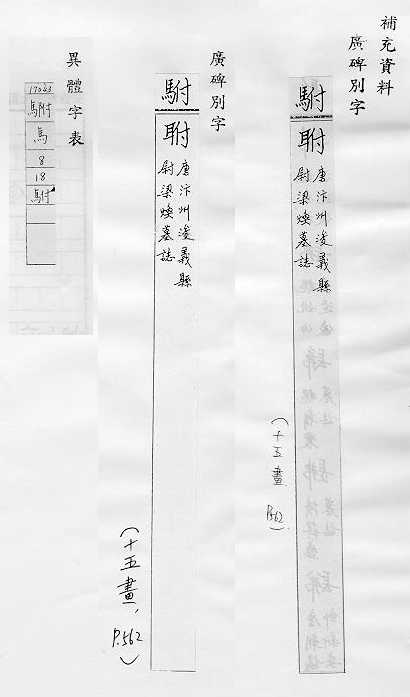 補充資料
廣碑別字
駙
𦔺唐汴州浚義縣
尉梁煥墓誌
(十五畫 P.562)
廣碑別字
駙
唐汴州浚義縣
尉梁煥墓誌
(十五畫, P.562)
異體字表
17043
駙
馬
8
18
駙